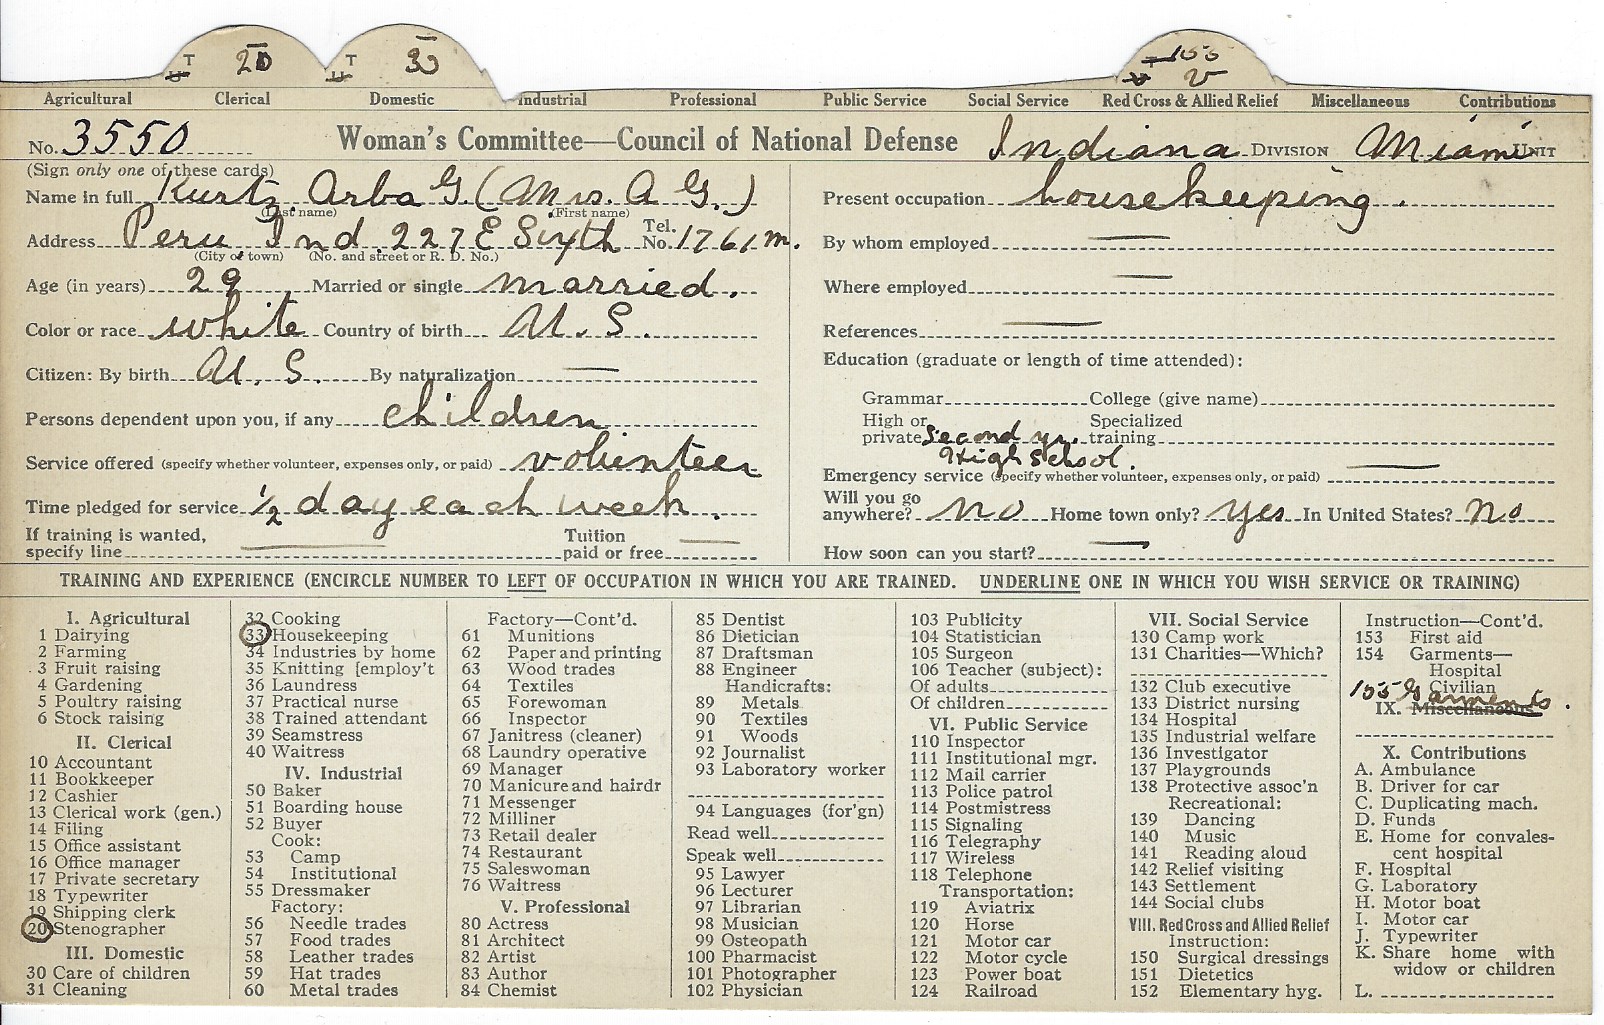 T 20 T 33 T 155
U U V V
Agricultural Clerical Domestic Industrial Professional Public Service Social Service Red Cross & Allied Relief Miscellaneous Contributions
No. 3550 Woman's Committee—Council of National Defense Indiana DIVISION Miami UNIT
(Sign only one of these cards)
Name in full Kurtz Arba G. (Mrs. A G.)
(Last name) (First name)
Address Peru Ind. 227 E Sixth Tel. No. 1761 m.
(City or town) (No. and street or R. D. No.)
Age (in years) 29 Married or single married.
Color or race white Country of birth U. S.
Citizen: By birth U. S. By naturalization —
Persons dependent upon you, if any children
Service offered (specify whether volunteer, expenses only, or paid) volunteer
Time pledged for service 1/2 day each week.
If training is wanted, Tuition
specify line — paid or free —
Present occupation housekeeping.
By whom employed —
Where employed —
References —
Education (graduate or length of time attended):
Grammar College (give name)
High or Specialized
private Second yr. training
High School.
Emergency service (specify whether volunteer, expenses only, or paid) —
Will you go
anywhere? no Home town only? Yes In United States? No
How soon can you start? —
TRAINING AND EXPERIENCE (ENCIRCLE NUMBER TO LEFT OF OCCUPATION IN WHICH YOU ARE TRAINED. UNDERLINE ONE IN WHICH YOU WISH SERVICE OR TRAINING)
I. Agricultural
1 Dairying
2 Farming
3 Fruit raising
4 Gardening
5 Poultry raising
6 Stock raising
II. Clerical
10 Accountant
11 Bookkeeper
12 Cashier
13 Clerical work (gen.)
14 Filing
15 Office assistant
16 Office manager
17 Private secretary
18 Typewriter
19 Shipping clerk
20 Stenographer
III. Domestic
30 Care of children
31 Cleaning
32 Cooking
33 Housekeeping
34 Industries by home
35 Knitting [employ't
36 Laundress
37 Practical nurse
38 Trained attendant
39 Seamstress
40 Waitress
IV. Industrial
50 Baker
51 Boarding house
52 Buyer
Cook:
53 Camp
54 Institutional
55 Dressmaker
Factory:
56 Needle trades
57 Food trades
58 Leather trades
59 Hat trades
60 Metal trades
Factory—Cont'd.
61 Munitions
62 Paper and printing
63 Wood trades
64 Textiles
65 Forewoman
66 Inspector
67 Janitress (cleaner)
68 Laundry operative
69 Manager
70 Manicure and hairdr
71 Messenger
72 Milliner
73 Retail dealer
74 Restaurant
75 Saleswoman
76 Waitress
V. Professional
80 Actress
81 Architect
82 Artist
83 Author
84 Chemist
85 Dentist
86 Dietician
87 Draftsman
88 Engineer
Handicrafts:
89 Metals
90 Textiles
91 Woods
92 Journalist
93 Laboratory worker
94 Languages (for'gn)
Read well
Speak well
95 Lawyer
96 Lecturer
97 Librarian
98 Musician
99 Osteopath
100 Pharmacist
101 Photographer
102 Physician
103 Publicity
104 Statistician
105 Surgeon
106 Teacher (subject):
Of adults
Of children
VI. Public Service
110 Inspector
111 Institutional mgr.
112 Mail carrier
113 Police patrol
114 Postmistress
115 Signaling
116 Telegraphy
117 Wireless
118 Telephone
Transportation:
119 Aviatrix
120 Horse
121 Motor car
122 Motor cycle
123 Power boat
124 Railroad
VII. Social Service
130 Camp work
131 Charities—Which?
132 Club executive
133 District nursing
134 Hospital
135 Industrial welfare
136 Investigator
137 Playgrounds
138 Protective assoc'n
Recreational:
139 Dancing
140 Music
141 Reading aloud
142 Relief visiting
143 Settlement
144 Social clubs
VIII. Red Cross and Allied Relief
Instruction:
150 Surgical dressings
151 Dietetics
152 Elementary hyg.
Instruction—Cont'd.
153 First aid
154 Garments—
Hospital
Civilian
155 Garments.
IX. Miscellaneous
X. Contributions
A. Ambulance
B. Driver for car
C. Duplicating mach.
D. Funds
E. Home for convales-
cent hospital
F. Hospital
G. Laboratory
H. Motor boat
I. Motor car
J. Typewriter
K. Share home with
widow or children
L.